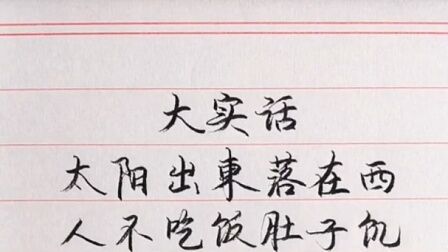 大实话
太阳出東落在西
人不吃饭肚子饥